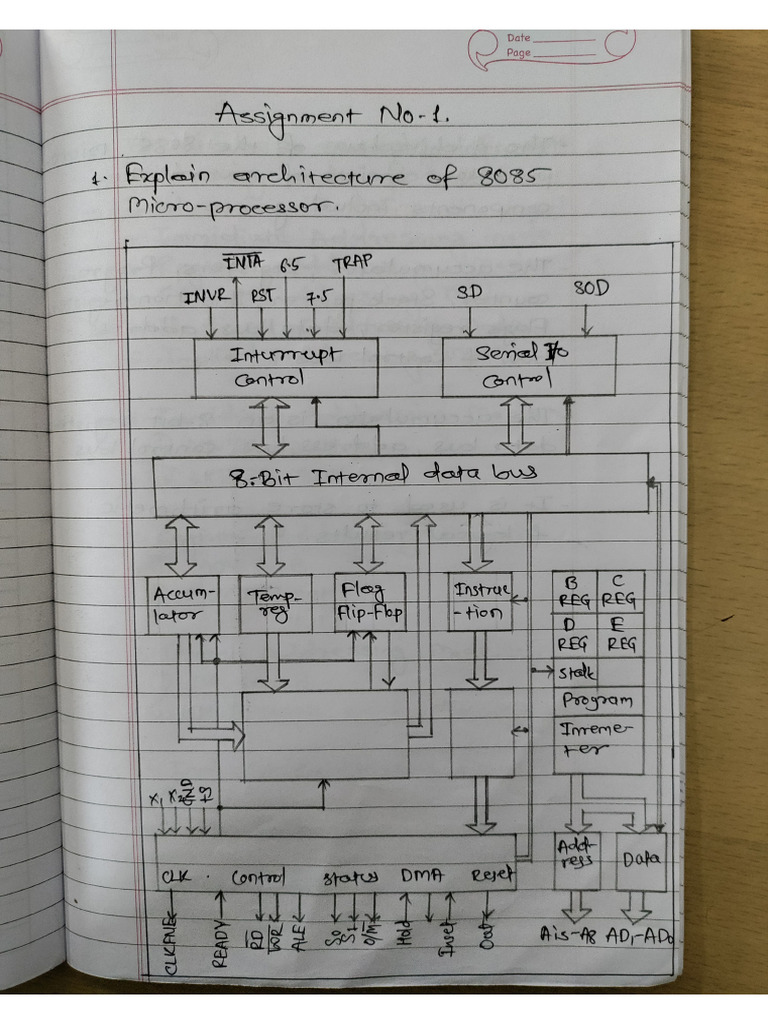 Date
Page
Assignment No-1.
1. Explain architecture of 8085
Micro-processor.
INTA 6.5 TRAP
INVR RST 7.5 SD SOD
Inturrupt
Control
Serial I/O
Control
8-Bit Internal data bus
Accum-
lator
Temp-
reg
Flag
Flip-flop
Instruc
-tion
B
REG
C
REG
D
REG
E
REG
Program
Inreme-
ter
X1 X2
CLK . Control Status DMA Reset
Add-
ress
Data
READY
RD
WR
ALE
S0
S1
Hold
Out
A15-A8 AD1-AD0